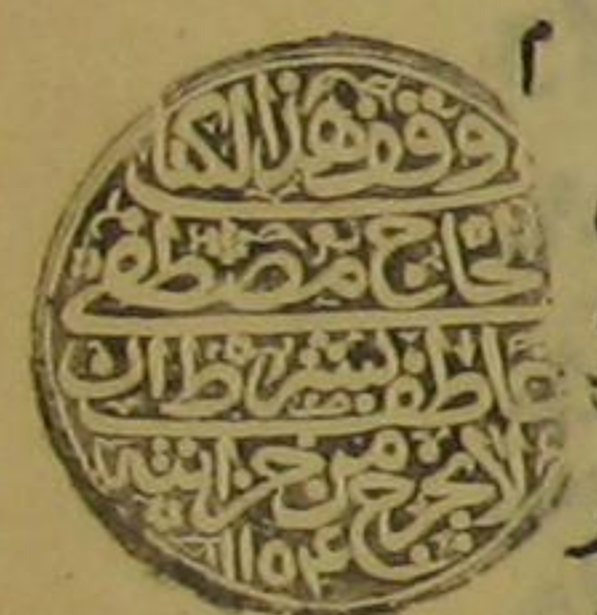 ٢
وقف هذا الكتاب
الحاج مصطفى
عاطف بشرط ان
لا يخرج من خزانته
١١٥٤